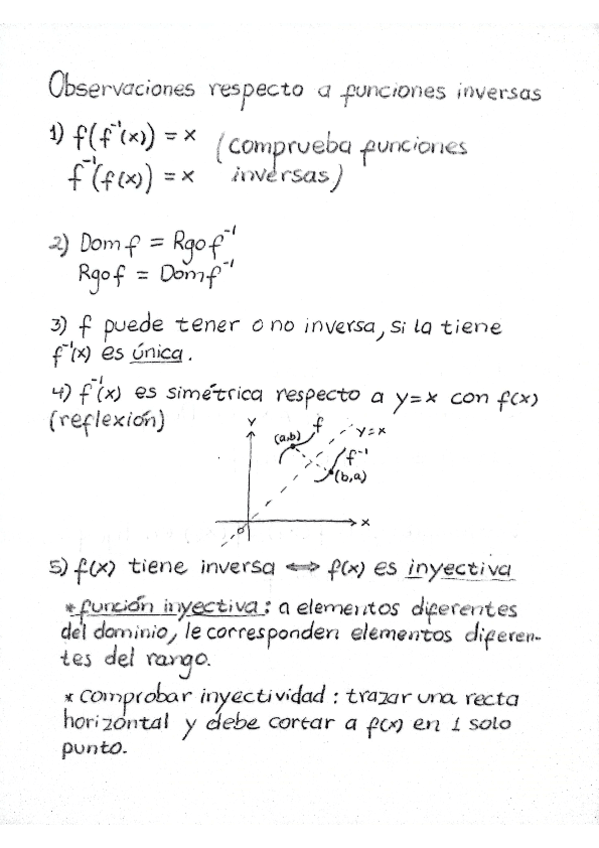 Observaciones respecto a funciones inversas
1) f(f⁻¹(x)) = x (comprueba funciones
f⁻¹(f(x)) = x inversas)
2) Dom f = Rgo f⁻¹
Rgo f = Dom f⁻¹
3) f puede tener o no inversa, si la tiene
f⁻¹(x) es única.
4) f⁻¹(x) es simétrica respecto a y=x con f(x)
(reflexión)
Y
f
y=x
(a,b)
f⁻¹
(b,a)
x
0
5) f(x) tiene inversa ⟺ f(x) es inyectiva
* función inyectiva: a elementos diferentes
del dominio, le corresponden elementos diferen-
tes del rango.
* comprobar inyectividad: trazar una recta
horizontal y debe cortar a f(x) en 1 solo
punto.